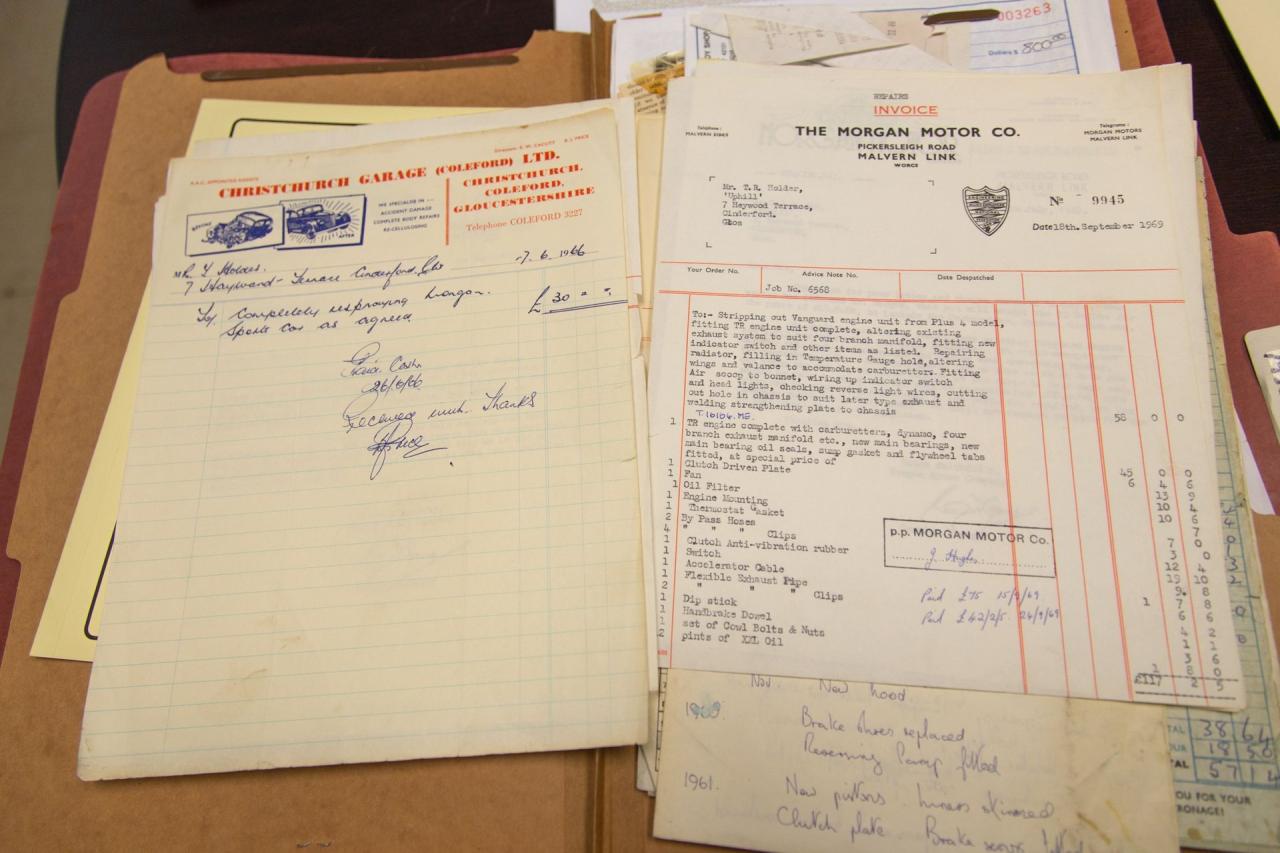 R.A.C. APPOINTED AGENTS
CHRISTCHURCH GARAGE (COLEFORD) LTD.
BEFORE
AFTER
WE SPECIALISE IN —
ACCIDENT DAMAGE
COMPLETE BODY REPAIRS
RE-CELLULOSING
CHRISTCHURCH,
COLEFORD,
GLOUCESTERSHIRE
Telephone COLEFORD 3227
7. 6. 1966
7 Hayward Terrace Cinderford
To Completely respraying Morgan
Sports Car as agreed
£ 30 " "
Paid Cash
Received with Thanks
003263
Dollars $ 800.00
REPAIRS
INVOICE
Telephone:
MALVERN
THE MORGAN MOTOR CO.
PICKERSLEIGH ROAD
MALVERN LINK
WORCS
Telegrams:
MORGAN MOTORS
MALVERN LINK
Mr. T.R. Holder,
'Uphill'
7 Heywood Terrace,
Cinderford.
Glos
No 9945
Date 18th. September 1969
Your Order No.
Advice Note No.
Date Despatched
Job No. 6568
To:- Stripping out Vanguard engine unit from Plus 4 model,
fitting TR engine unit complete, altering existing
exhaust system to suit four branch manifold, fitting new
indicator switch and other items as listed. Repairing
radiator, filling in Temperature Gauge hole, altering
wings and valance to accommodate carburetters. Fitting
Air scoop to bonnet, wiring up indicator switch
and head lights, checking reverse light wires, cutting
out hole in chassis to suit later type exhaust and
welding strengthening plate to chassis
58 0 0
1 TR engine complete with carburetters, dynamo, four
branch exhaust manifold etc., new main bearings, new
main bearing oil seals, sump gasket and flywheel tabs
fitted, at special price of
45 0 0
1 Clutch Driven Plate
1 Fan
1 Oil Filter
1 Engine Mounting
1 Thermostat Gasket
2 By Pass Hoses
4 " " " Clips
1 Clutch Anti-vibration rubber
1 Switch
1 Accelerator Cable
1 Flexible Exhaust Pipe
2 " " " Clips
1 Dip stick
1 Handbrake Dowel
1 set of Cowl Bolts & Nuts
2 pints of XXL Oil
p.p. MORGAN MOTOR Co.
J. Hughes
Paid £75 15/9/69
Paid £42/2/5. 24/9/69
£117 2 5
Nov. New hood
Brake shoes replaced
Reversing lamp fitted
1961.
New pistons liners
Clutch plate Brake
TAL 38 64
UR 18 50
TAL 57 14
YOU FOR YOUR
RONAGE!